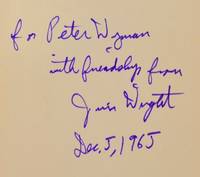 for Peter Wyman
with friendship from
James Wright
Dec. 5, 1965